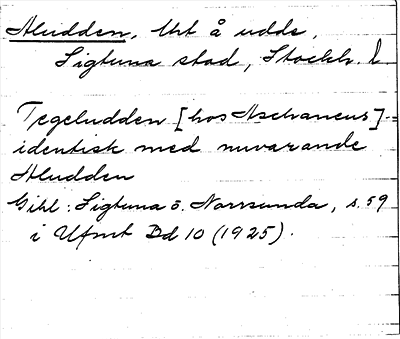 Aludden, Urt å udde,
Sigtuna stad, Stockh. l
Tegeludden [hos Aschaneus]
identisk med nuvarande
Aludden
Gihl: Sigtuna o. Norrsunda, s. 59
i Ufmt Bd 10 (1925).